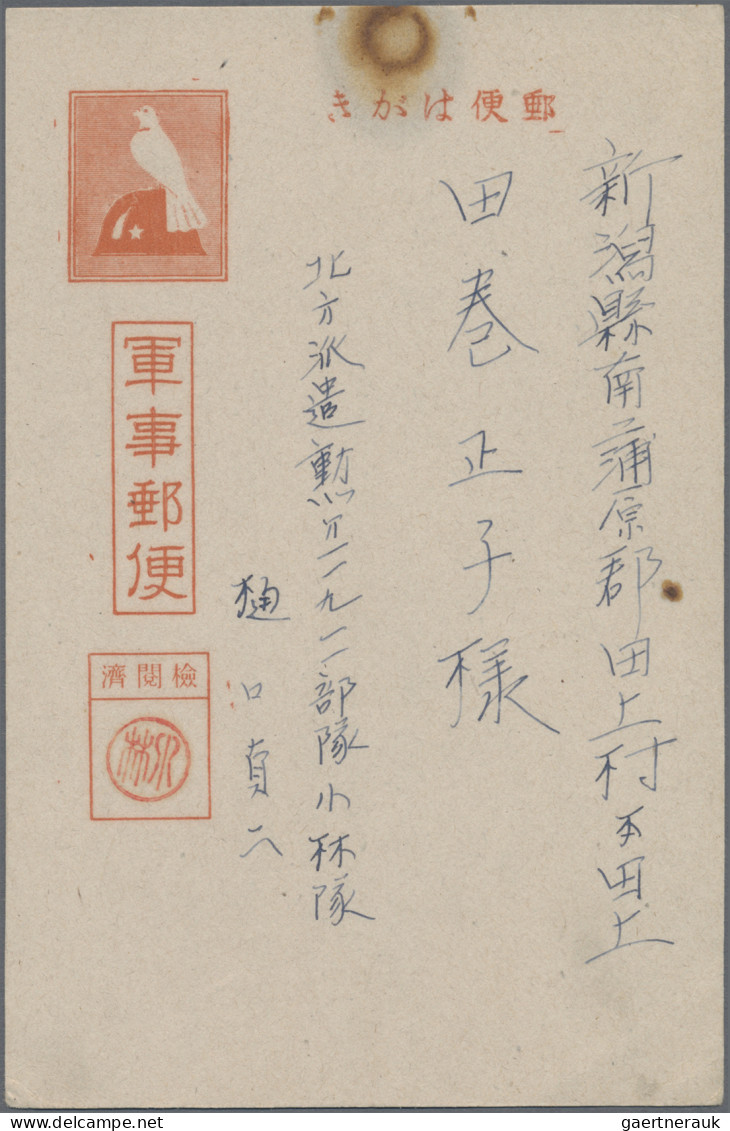 郵便はがき
新潟縣南蒲原郡田上村本田上
田巻正子様
北方派遣勲第一一九一一部隊小林隊
樋口貞二
軍事郵便
檢閱濟
小林
delcampe.net
gaertnerauk